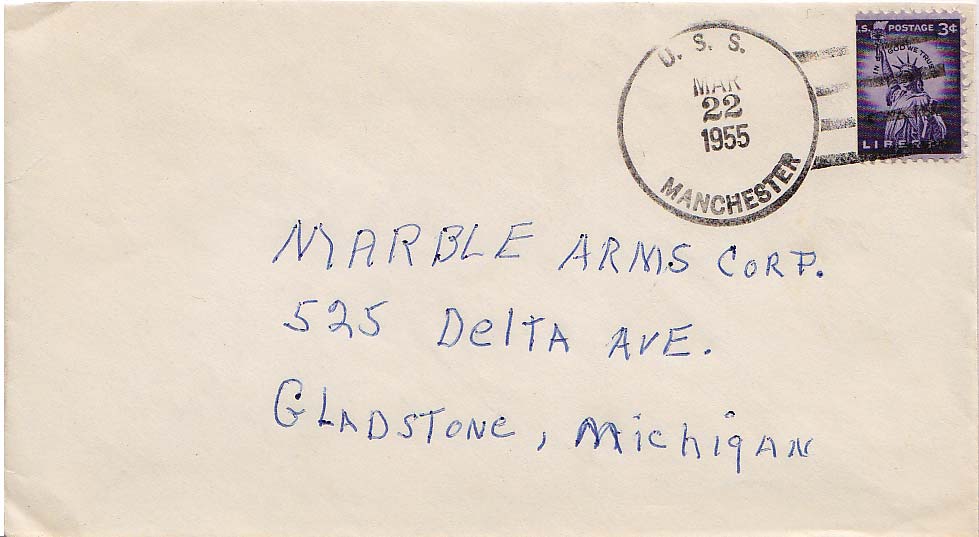 U.S. POSTAGE 3¢
IN GOD WE TRUST
LIBERTY
U. S. S.
MAR
22
1955
MANCHESTER
MARBLE ARMS CORP.
525 DelTA AVE.
GLADSTONE, MichigAN